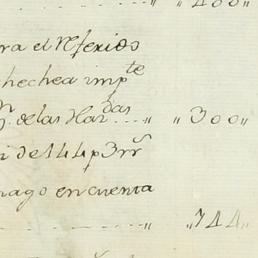 "400"
ra el referios
hechea imp^te
n. de las Har^das ... " "300"
i de 144 p 3 rr^s
hago en cuenta
" "744"